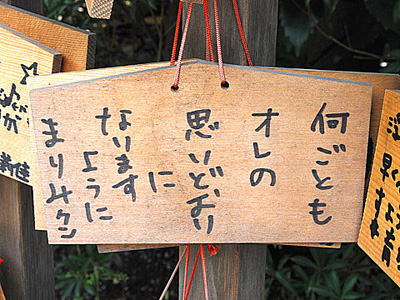 何ごとも
オレの
思いどおり
に
なります
ように
まりみクン
早く